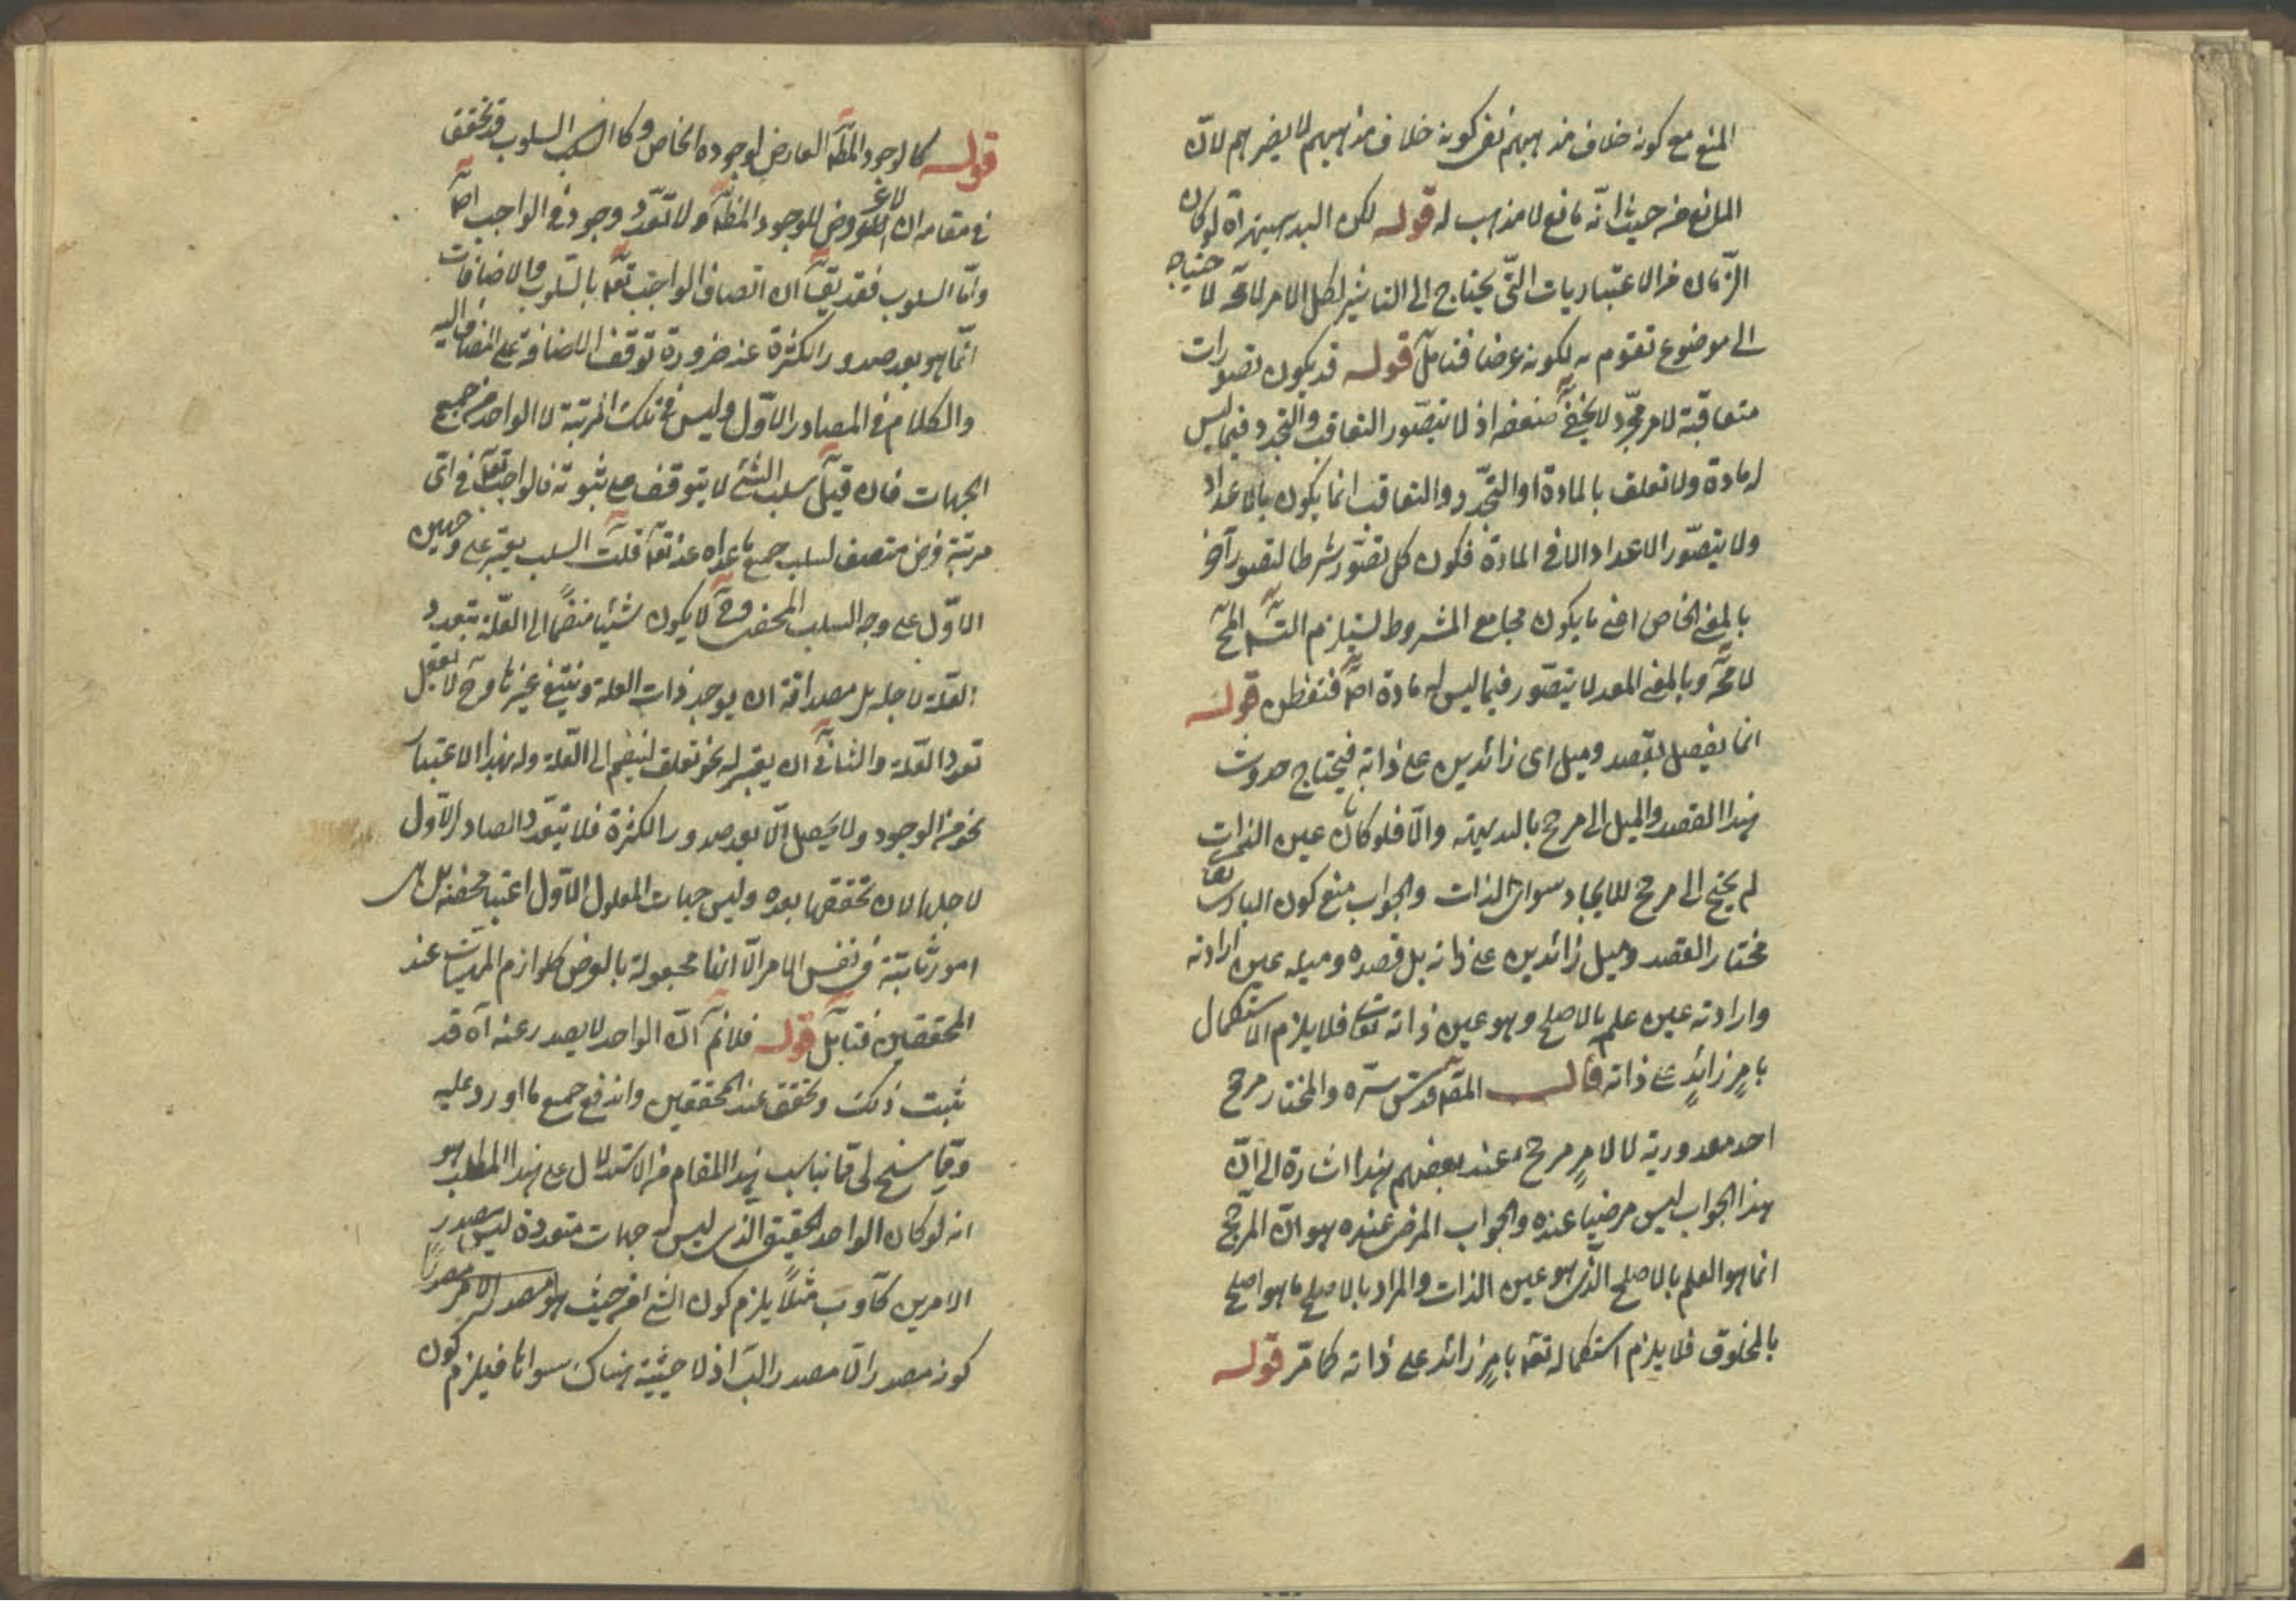 المنع مع كونه خلاف مذهبهم نفى كونه خلاف مذهبهم لا يضرهم لان
المانع من حيث انه مانع لا مذهب له قوله لكن البديهية آه لو كان
الزمان من الاعتباريات التى يحتاج الى التاثير لكل الامر لامحه لا حتياجه
الى موضوع تقوم به لكونه عرضا فتامل قوله قد يكون تصورات
متعاقبة لامر مجرد لا يخفى ضعفه اذ لا يتصور التعاقب والتجدد فيما ليس
له مادة ولا تعلق بالمادة او التجدد والتعاقب انما يكون بالاعداد
ولا يتصور الاعداد الا فى المادة فكون كل تصور شرطا لتصور آخر
بالمعنى الخاص اعنى ما يكون مجامع المشروط يستلزم التسـ المحـ
لامحه وبالمعنى المعد لا يتصور فيما ليس له مادة اصـ فتفطن قوله
انما يفعل بقصد وميل اى زائدين على ذاته فيحتاج حدوث
هذا القصد والميل الى مرجح بالبديهة والا فلو كان عين الذات
لم يحتج الى مرجح للايجاد سوى الذات والجواب منع كون البارى تعا
مختار القصد وميل زائدين على ذاته بل قصده وميله عين ارادته
وارادته عين علمه بالاصلح وهو عين ذاته تعا فلا يلزم الاستكمال
بامرٍ زائدٍ على ذاته قال المصـ قدس سره والمختار مرجح
احد مقدوريه لا لامرٍ مرجح عند بعضهم هذا اشارة الى ان
هذا الجواب ليس مرضيا عنده والجواب المرضى عنده هو ان المرجح
انما هو العلم بالاصلح الذى هو عين الذات والمراد بالاصلح ما هو اصلح
بالمخلوق فلا يلزم استكماله تعـ بامرٍ زائد على ذاته كما مر قوله
قوله كالوجود المطـ العارض لوجوده الخاص وكا السلوب قد تحقق
فى مقامه ان لا عروض للوجود المطـ ولا تعدد وجود فى الواجب اصـ
واما السلوب فقد يقـ ان اتصاف الواجب تعـ بالسلوب والاضافات
انما هو بعد صدور الكثرة عنه ضرورة توقف الاضافة على المضاف اليه
والكلام فى المصادر الاول وليس فى تلك المرتبة الا الواحد من جميع
الجهات فان قيل سلب الشئ لا يتوقف على ثبوته فالواجب تعـ فى اى
مرتبة فرض متصف لسلب جميع ما عداه عنه تعـ قلت السلب يعتبر على وجهين
الاول على وجه السلب المحض وحـ لا يكون شيئا منضما الى العلة يتعدد
العلة لاجله بل مصداقه ان يوجد ذات العلة وينتفى غيرها وحـ لا يعقل
تعدد العلة والثانى ان يعتبر له نحو تعلق لينضم الى العلة وله بهذا الاعتبار
نحو من الوجود ولا يحصل الا بعد صدور الكثرة فلا يتعدد الصادر الاول
لاجلها لان تحققها بعده وليس جهات المعلول الاول اعتبا محضة بل هى
امور ثابتة فى نفس الامر الا انها مجعولة بالعرض كلوازم المهيات عند
المحققين فتامل قوله فلانم ان الواحد لا يصدر عنه آه قد
ثبت ذلك وتحقق عند المحققين واندفع جميع ما اورد عليه
ومما سنح لى مما يناسب هذا المقام من الاستدلال على هذا المطلب هو
انه لو كان الواحد الحقيقى الذى ليس له جهات متعددة يصدر
الامرين كآ وب مثلاً يلزم كون الشئ من حيث هو مصدر الامر مصدرا
كونه مصدرا لآ مصدر البـ اذ لا حيثية هناك سواها فيلزم كون